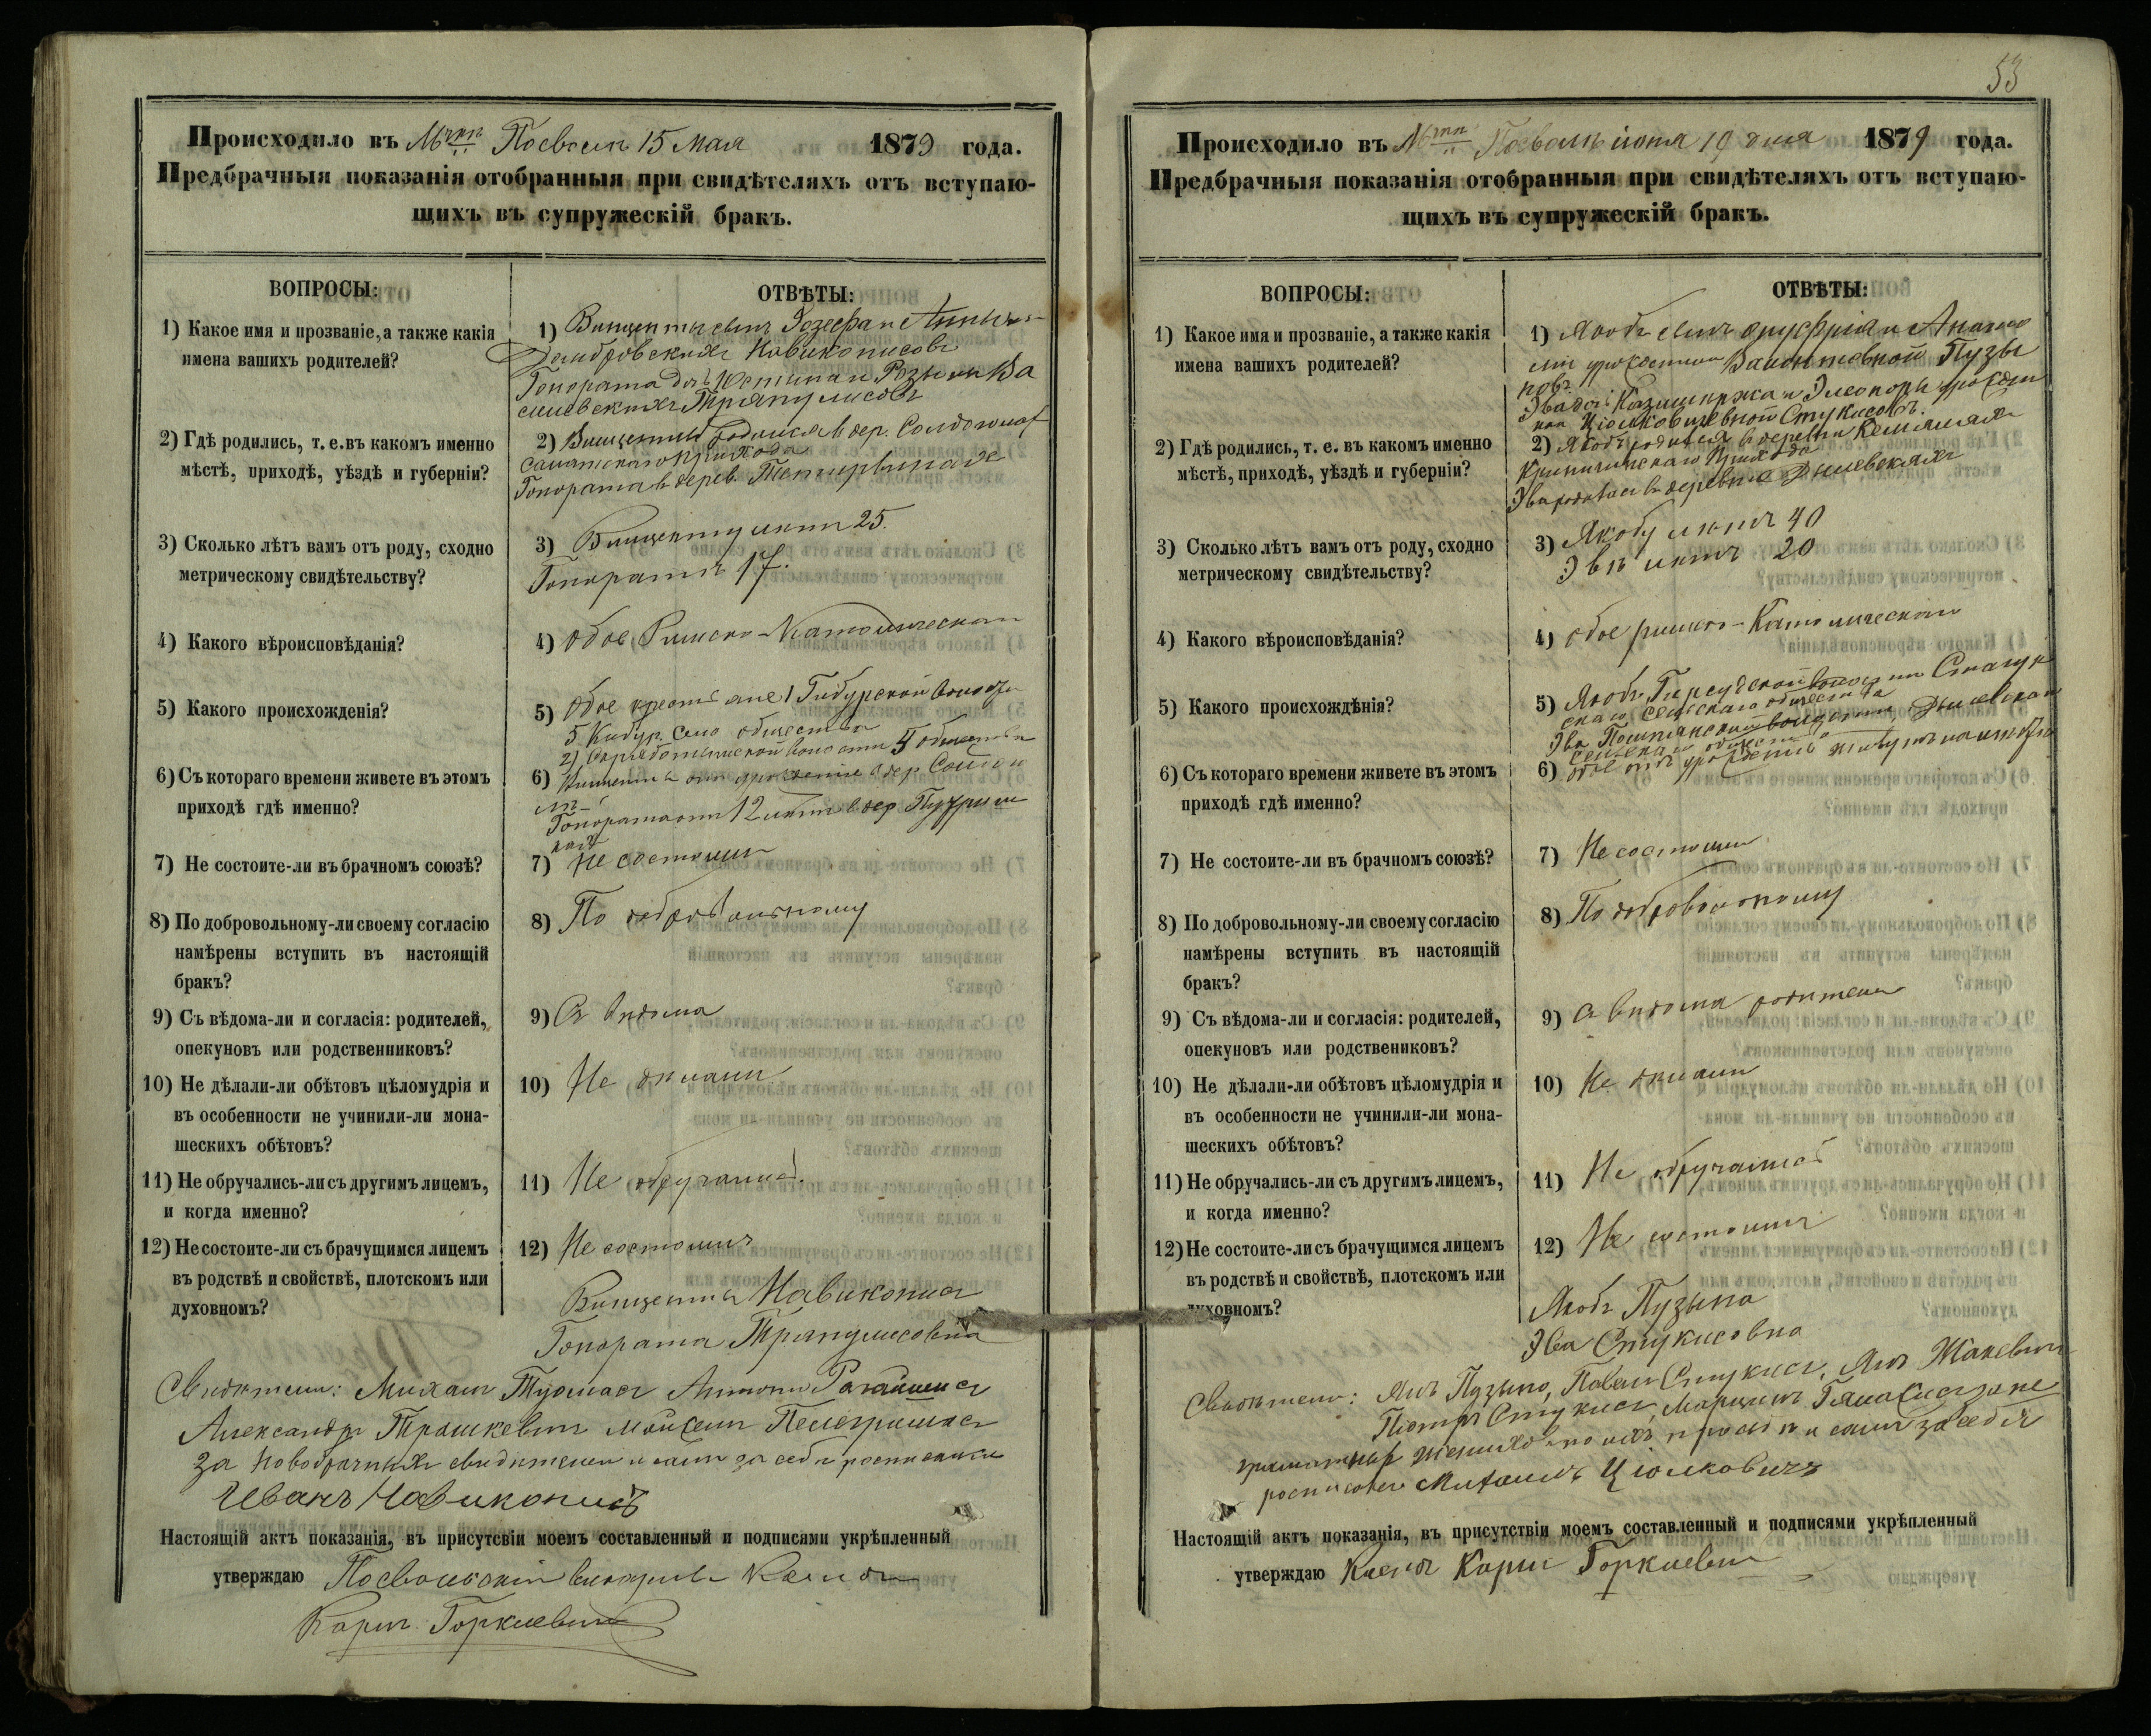 Происходило въ Мѣст. Посволѣ 15 Мая 1879 года.
Предбрачныя показанія отобранныя при свидѣтеляхъ отъ вступаю-
щихъ въ супружескій бракъ.
ВОПРОСЫ:
ОТВѢТЫ:
1) Какое имя и прозваніе, а также какія
имена вашихъ родителей?
1) Винценты сынъ Іозефа и Анны
Домбровскихъ Навиконисовъ
Гонората дочь Юстина и Розыи Ва
силевскихъ Тряпулисовъ
2) Гдѣ родились, т. е. въ какомъ именно
мѣстѣ, приходѣ, уѣздѣ и губерніи?
2) Винцентый родился въ дер.
прихода
Гонората въ дерев.
3) Сколько лѣтъ вамъ отъ роду, сходно
метрическому свидѣтельству?
3) Винценту лѣтъ 25.
Гоноратѣ 17.
4) Какого вѣроисповѣданія?
4) Обое Римско-Католическаго
5) Какого происхожденія?
5) Обое крестьяне 1 волости
5 общества
2) волости 4 общества
6) Съ котораго времени живете въ этомъ
приходѣ гдѣ именно?
6) Винценты отъ рожденія въ дер.
Гонората отъ 12 лѣтъ въ дер
7) Не состоите-ли въ брачномъ союзѣ?
7) Не состоимъ
8) По добровольному-ли своему согласію
намѣрены вступить въ настоящій
бракъ?
8) По добровольному
9) Съ вѣдома-ли и согласія: родителей,
опекуновъ или родственниковъ?
9) Съ вѣдома
10) Не дѣлали-ли обѣтовъ цѣломудрія и
въ особенности не учинили-ли мона-
шескихъ обѣтовъ?
10) Не дѣлали
11) Не обручались-ли съ другимъ лицемъ,
и когда именно?
11) Не обручались.
12) Не состоите-ли съ брачущимся лицемъ
въ родствѣ и свойствѣ, плотскомъ или
духовномъ?
12) Не состоимъ
Винценты Навиконис
Гонората Тряпулисовна
Свидѣтели: Михаилъ Туомасъ Антони
Александръ Трашкевичъ
за новобрачныхъ свидѣтелей и самъ за себя росписался
Иванъ Навиконисъ
Настоящій актъ показанія, въ присутсвіи моемъ составленный и подписями укрѣпленный
утверждаю Посвольскій викарный Ксендзъ
Карлъ Горкевичъ
53
Происходило въ Мѣст. Посволѣ іюня 19 дня 1879 года.
Предбрачныя показанія отобранныя при свидѣтеляхъ отъ вступаю-
щихъ въ супружескій бракъ.
ВОПРОСЫ:
ОТВѢТЫ:
1) Какое имя и прозваніе, а также какія
имена вашихъ родителей?
1) Якобъ сынъ Онуфрія и
урожденной Пузы
новъ
Эва дочь Казимержа и Элеоноры урожден
ной Ціолковичевной Стукисовъ.
2) Гдѣ родились, т. е. въ какомъ именно
мѣстѣ, приходѣ, уѣздѣ и губерніи?
2) Якобъ родился въ деревни
прихода
Эва родилась въ деревни
3) Сколько лѣтъ вамъ отъ роду, сходно
метрическому свидѣтельству?
3) Якобу лѣтъ 40
Эвѣ лѣтъ 20
4) Какого вѣроисповѣданія?
4) обое римско-Католическаго
5) Какого происхождѣнія?
5) Якобъ волости
сельскаго общества
Эва волости
сельскаго общества
6) Съ котораго времени живете въ этомъ
приходѣ гдѣ именно?
6) обое отъ урожденія живутъ
7) Не состоите-ли въ брачномъ союзѣ?
7) Не состоимъ
8) По добровольному-ли своему согласію
намѣрены вступить въ настоящій
бракъ?
8) По добровольному
9) Съ вѣдома-ли и согласія: родителей,
опекуновъ или родствениковъ?
9) съ вѣдома родителей
10) Не дѣлали-ли обѣтовъ цѣломудрія и
въ особенности не учинили-ли мона-
шескихъ обѣтовъ?
10) Не дѣлали
11) Не обручались-ли съ другимъ лицемъ,
и когда именно?
11) Не обручались
12) Не состоите-ли съ брачущимся лицемъ
въ родствѣ и свойствѣ, плотскомъ или
духовномъ?
12) Не состоимъ
Якобъ Пузыно
Эва Стукисовна
Свидѣтели: Янъ Пузыно, Павелъ Стукисъ, Янъ
Піотръ Стукисъ, Марцинъ
и самъ за себя
росписался Михаилъ Ціолковичъ
Настоящій актъ показанія, въ присутствіи моемъ составленный и подписями укрѣпленный
утверждаю Ксендзъ Карлъ Горкевичъ